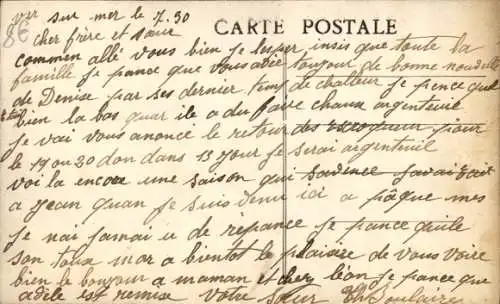 86
sur mer le 7.30
CARTE POSTALE
cher frère et saur
commen allé vous bien je lesper insis que toute la
famille je pance que vous avée toujour de bonne nouvelle
de Denise par ses dernier temp de challeur je pence quel
bien la bas quar il a du faire chaux argenteuil
je vai vous anoncé le retour des pour
le 19 ou 20 don dans 13 jour je serai argenteuil
voi la encore une saison qui savait
a jean quan je suis denu ici a pâque mes
je nai jamai u de repance je pance quile
son toux mor a bientot le plaisire de vous voire
bien le bonjour a maman et cher léon je pance que
adèle est remise votre saur